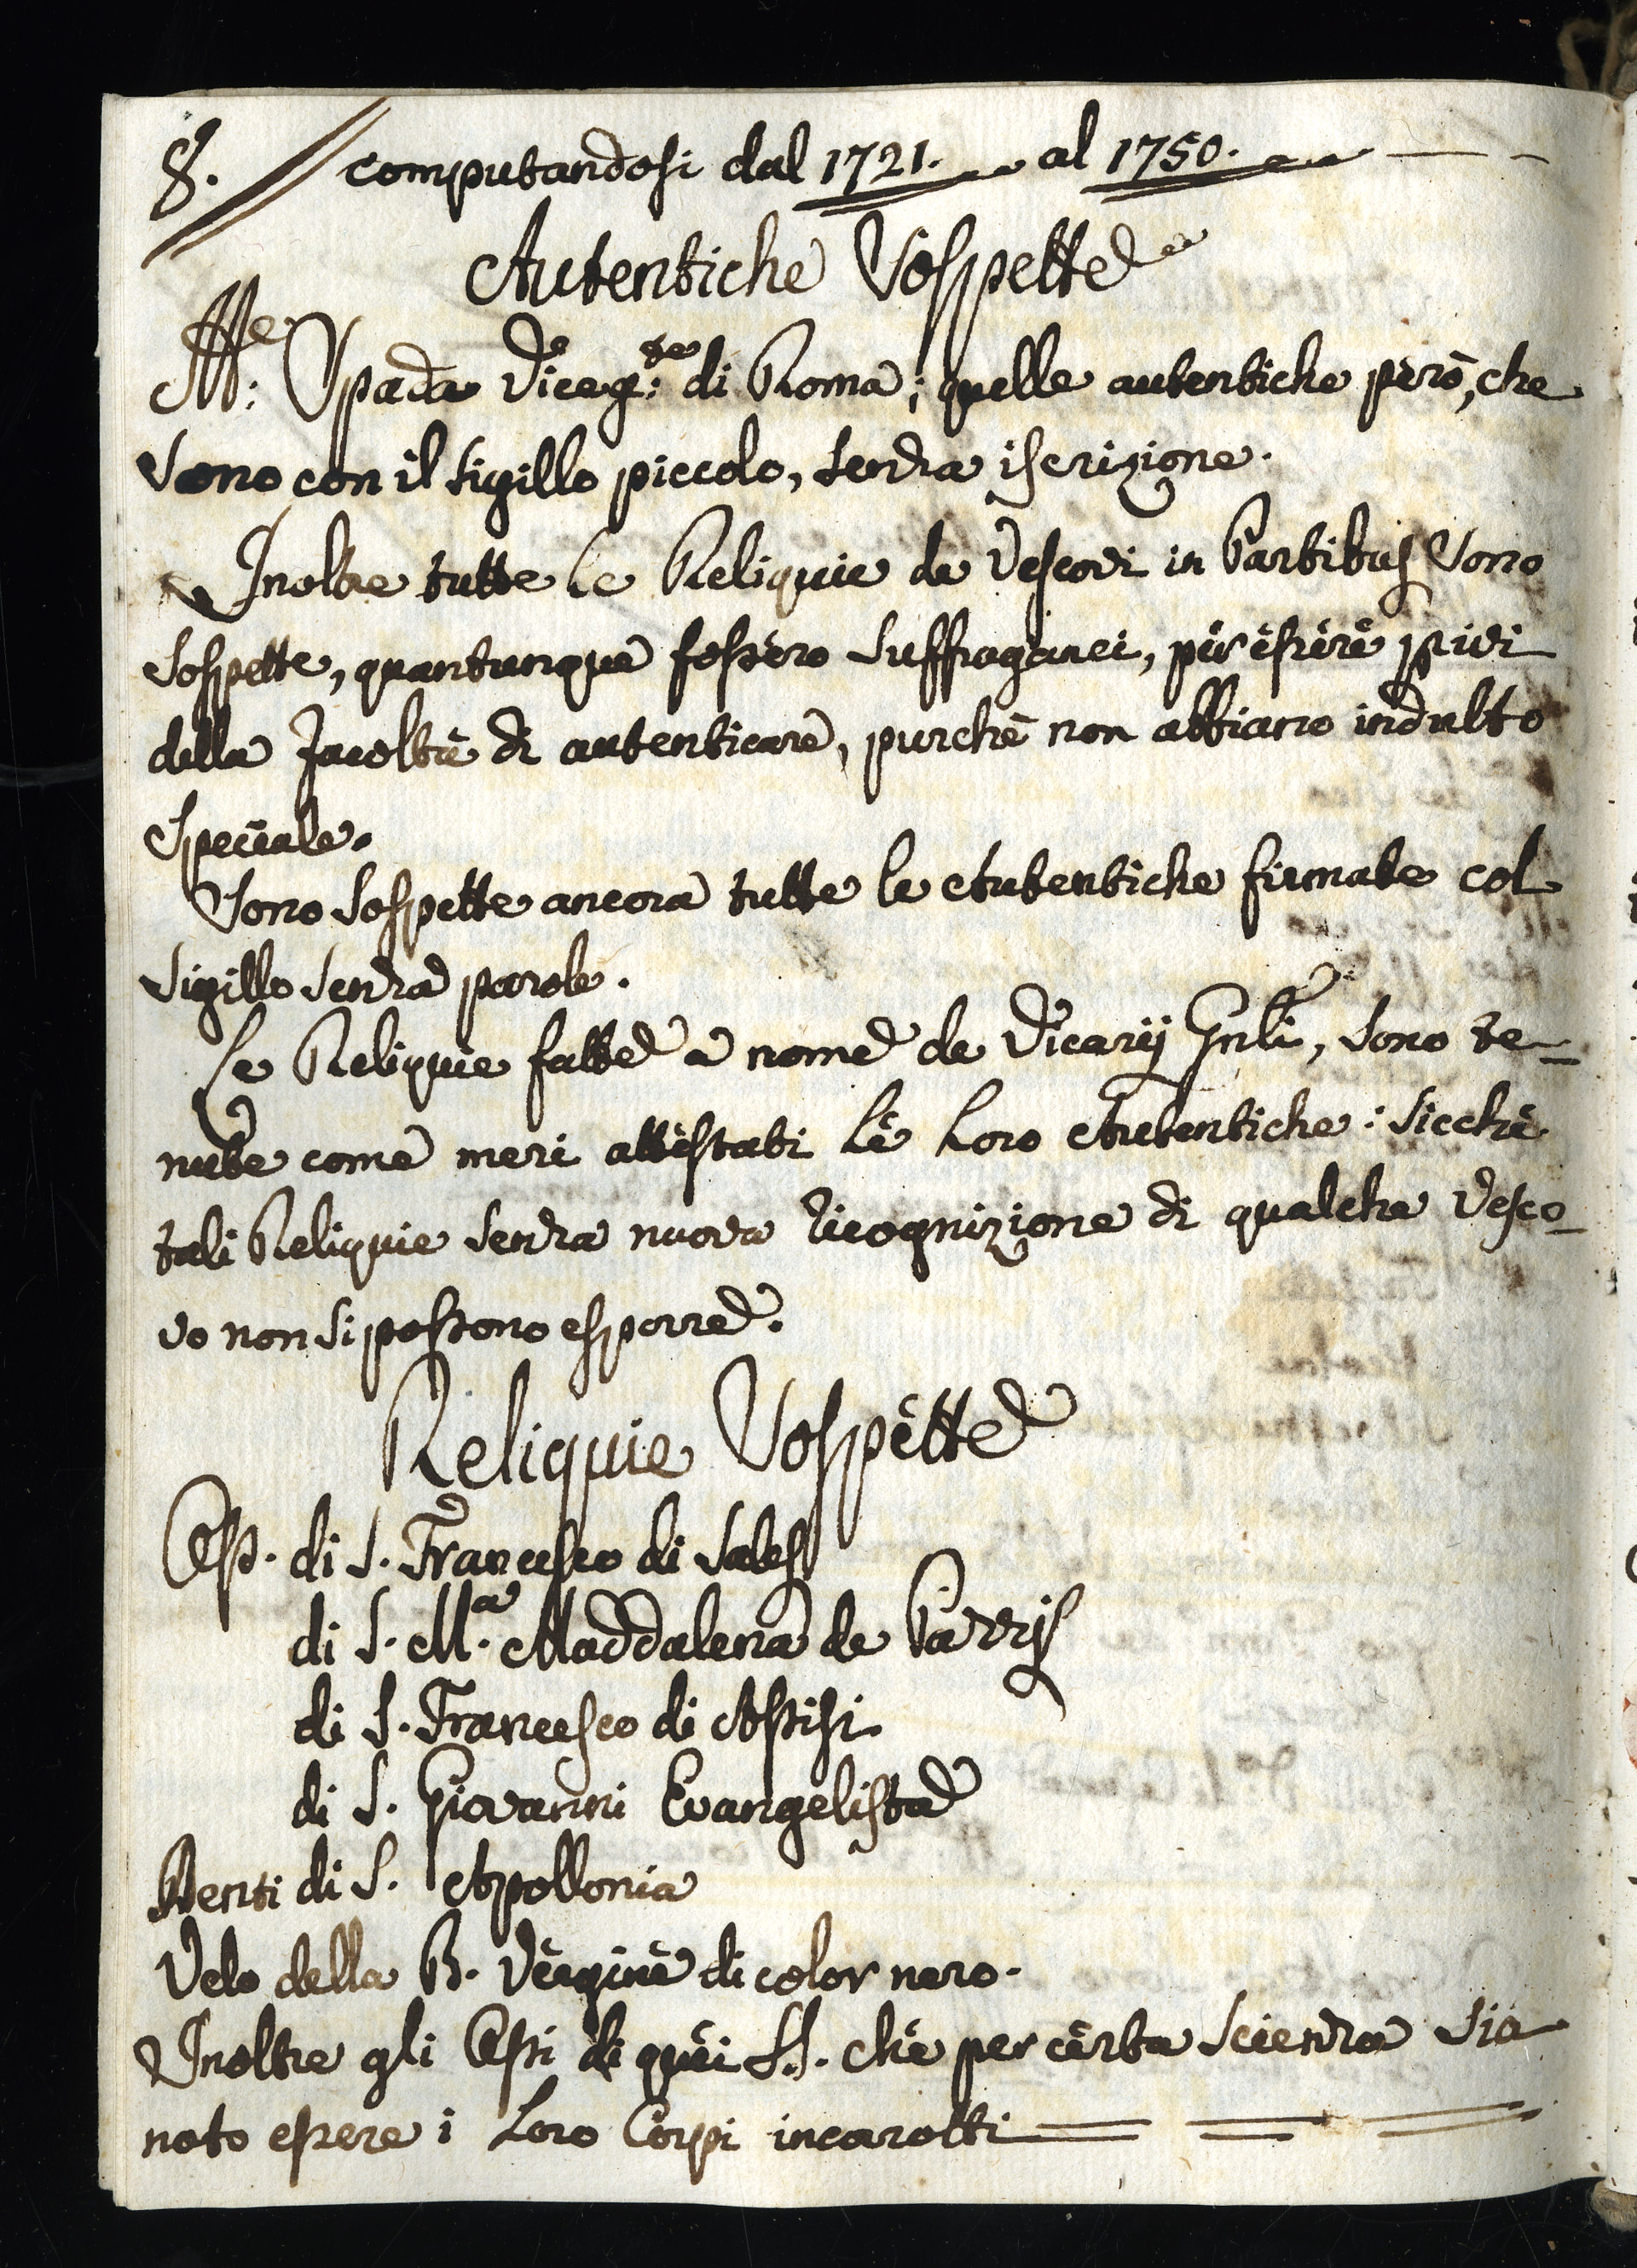 8. // computandosi dal 1721. al 1750.
Autentiche Sospette
M:e Spada Viceg:te di Roma; quelle autentiche però, che
sono con il sigillo piccolo, senza iscrizione.
Inoltre tutte le Reliquie de Vescovi in Partibus sono
sospette, quantunque fossero suffraganei, per essere privi
della facoltà di autenticare, purchè non abbiano indulto
speciale.
Sono sospette ancora tutte le Autentiche firmate col
sigillo senza parole.
Le Reliquie fatte a nome de Vicarij Gnli, sono te-
nute come meri attestati le loro Autentiche: sicchè
tali Reliquie senza nuova ricognizione di qualche Vesco-
vo non si possono esporre.
Reliquie Sospette
Oss. di S. Francesco di Sales
di S. M.a Maddalena de Pazzis
di S. Francesco di Assisi
di S. Giovanni Evangelista
Denti di S. Apollonia
Velo della B. Vergine di color nero.
Inoltre gli Ossi di quei SS. che per certa scienza sia
noto essere i loro Corpi incarotti